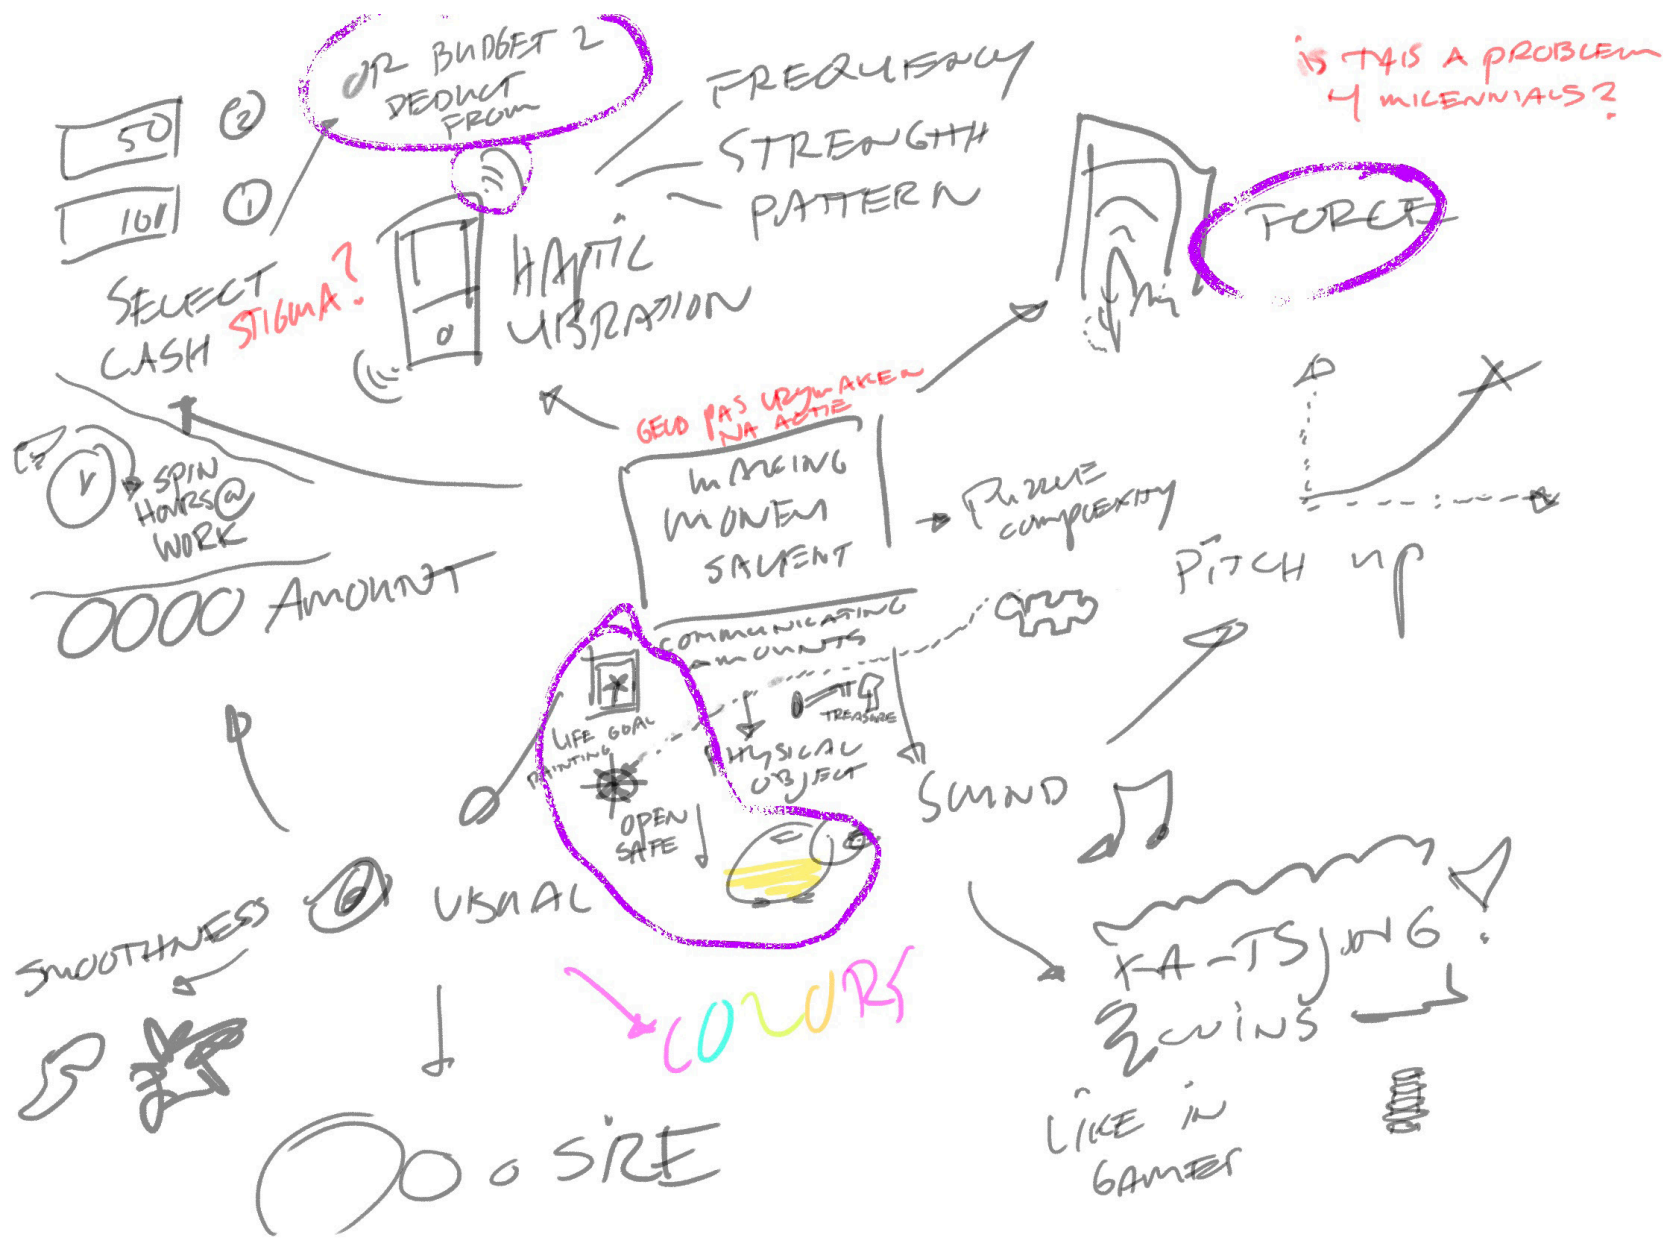 OR BUDGET 2
DEDUCT
FROM
50
2
100
1
SELECT
CASH
STIGMA?
FREQUENCY
STRENGTH
PATTERN
HAPTIC
VIBRATION
IS THIS A PROBLEM
4 MILENNIALS?
FORCE
GELD PAS
NA ACTIE
MAKING
MONEY
SALIENT
PUZZLE
COMPLEXITY
SPIN
HOURS@
WORK
AMOUNT
COMMUNICATING
AMOUNTS
PITCH UP
LIFE GOAL
PAINTING
TREASURE
PHYSICAL
OBJECT
OPEN
SAFE
SOUND
VISUAL
SMOOTHNESS
COLORS
KA-TSJING!
COINS
LIKE IN
GAMES
SIZE